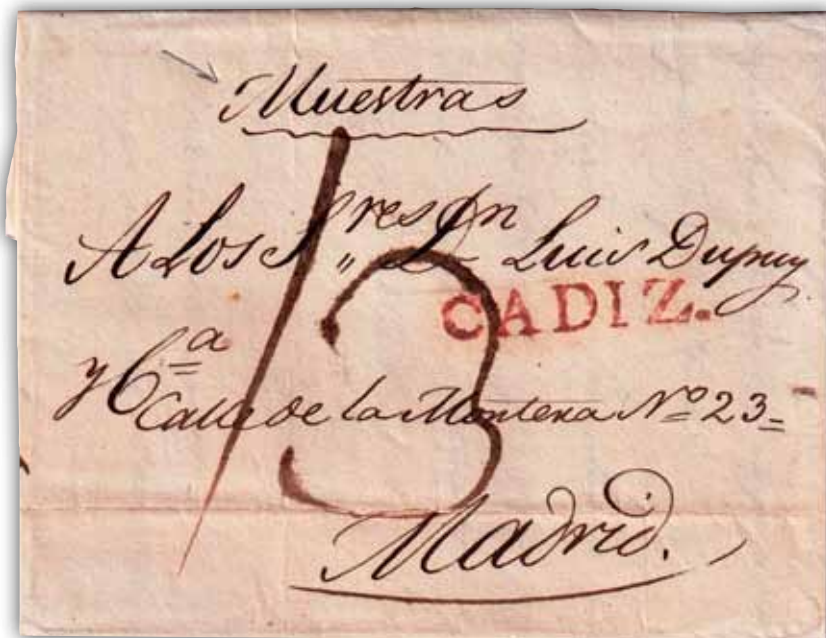 Muestras
A Los S.res Dn Luis Dupuy
CADIZ.
y Ca
Calle de la Montera No 23
13
Madrid.